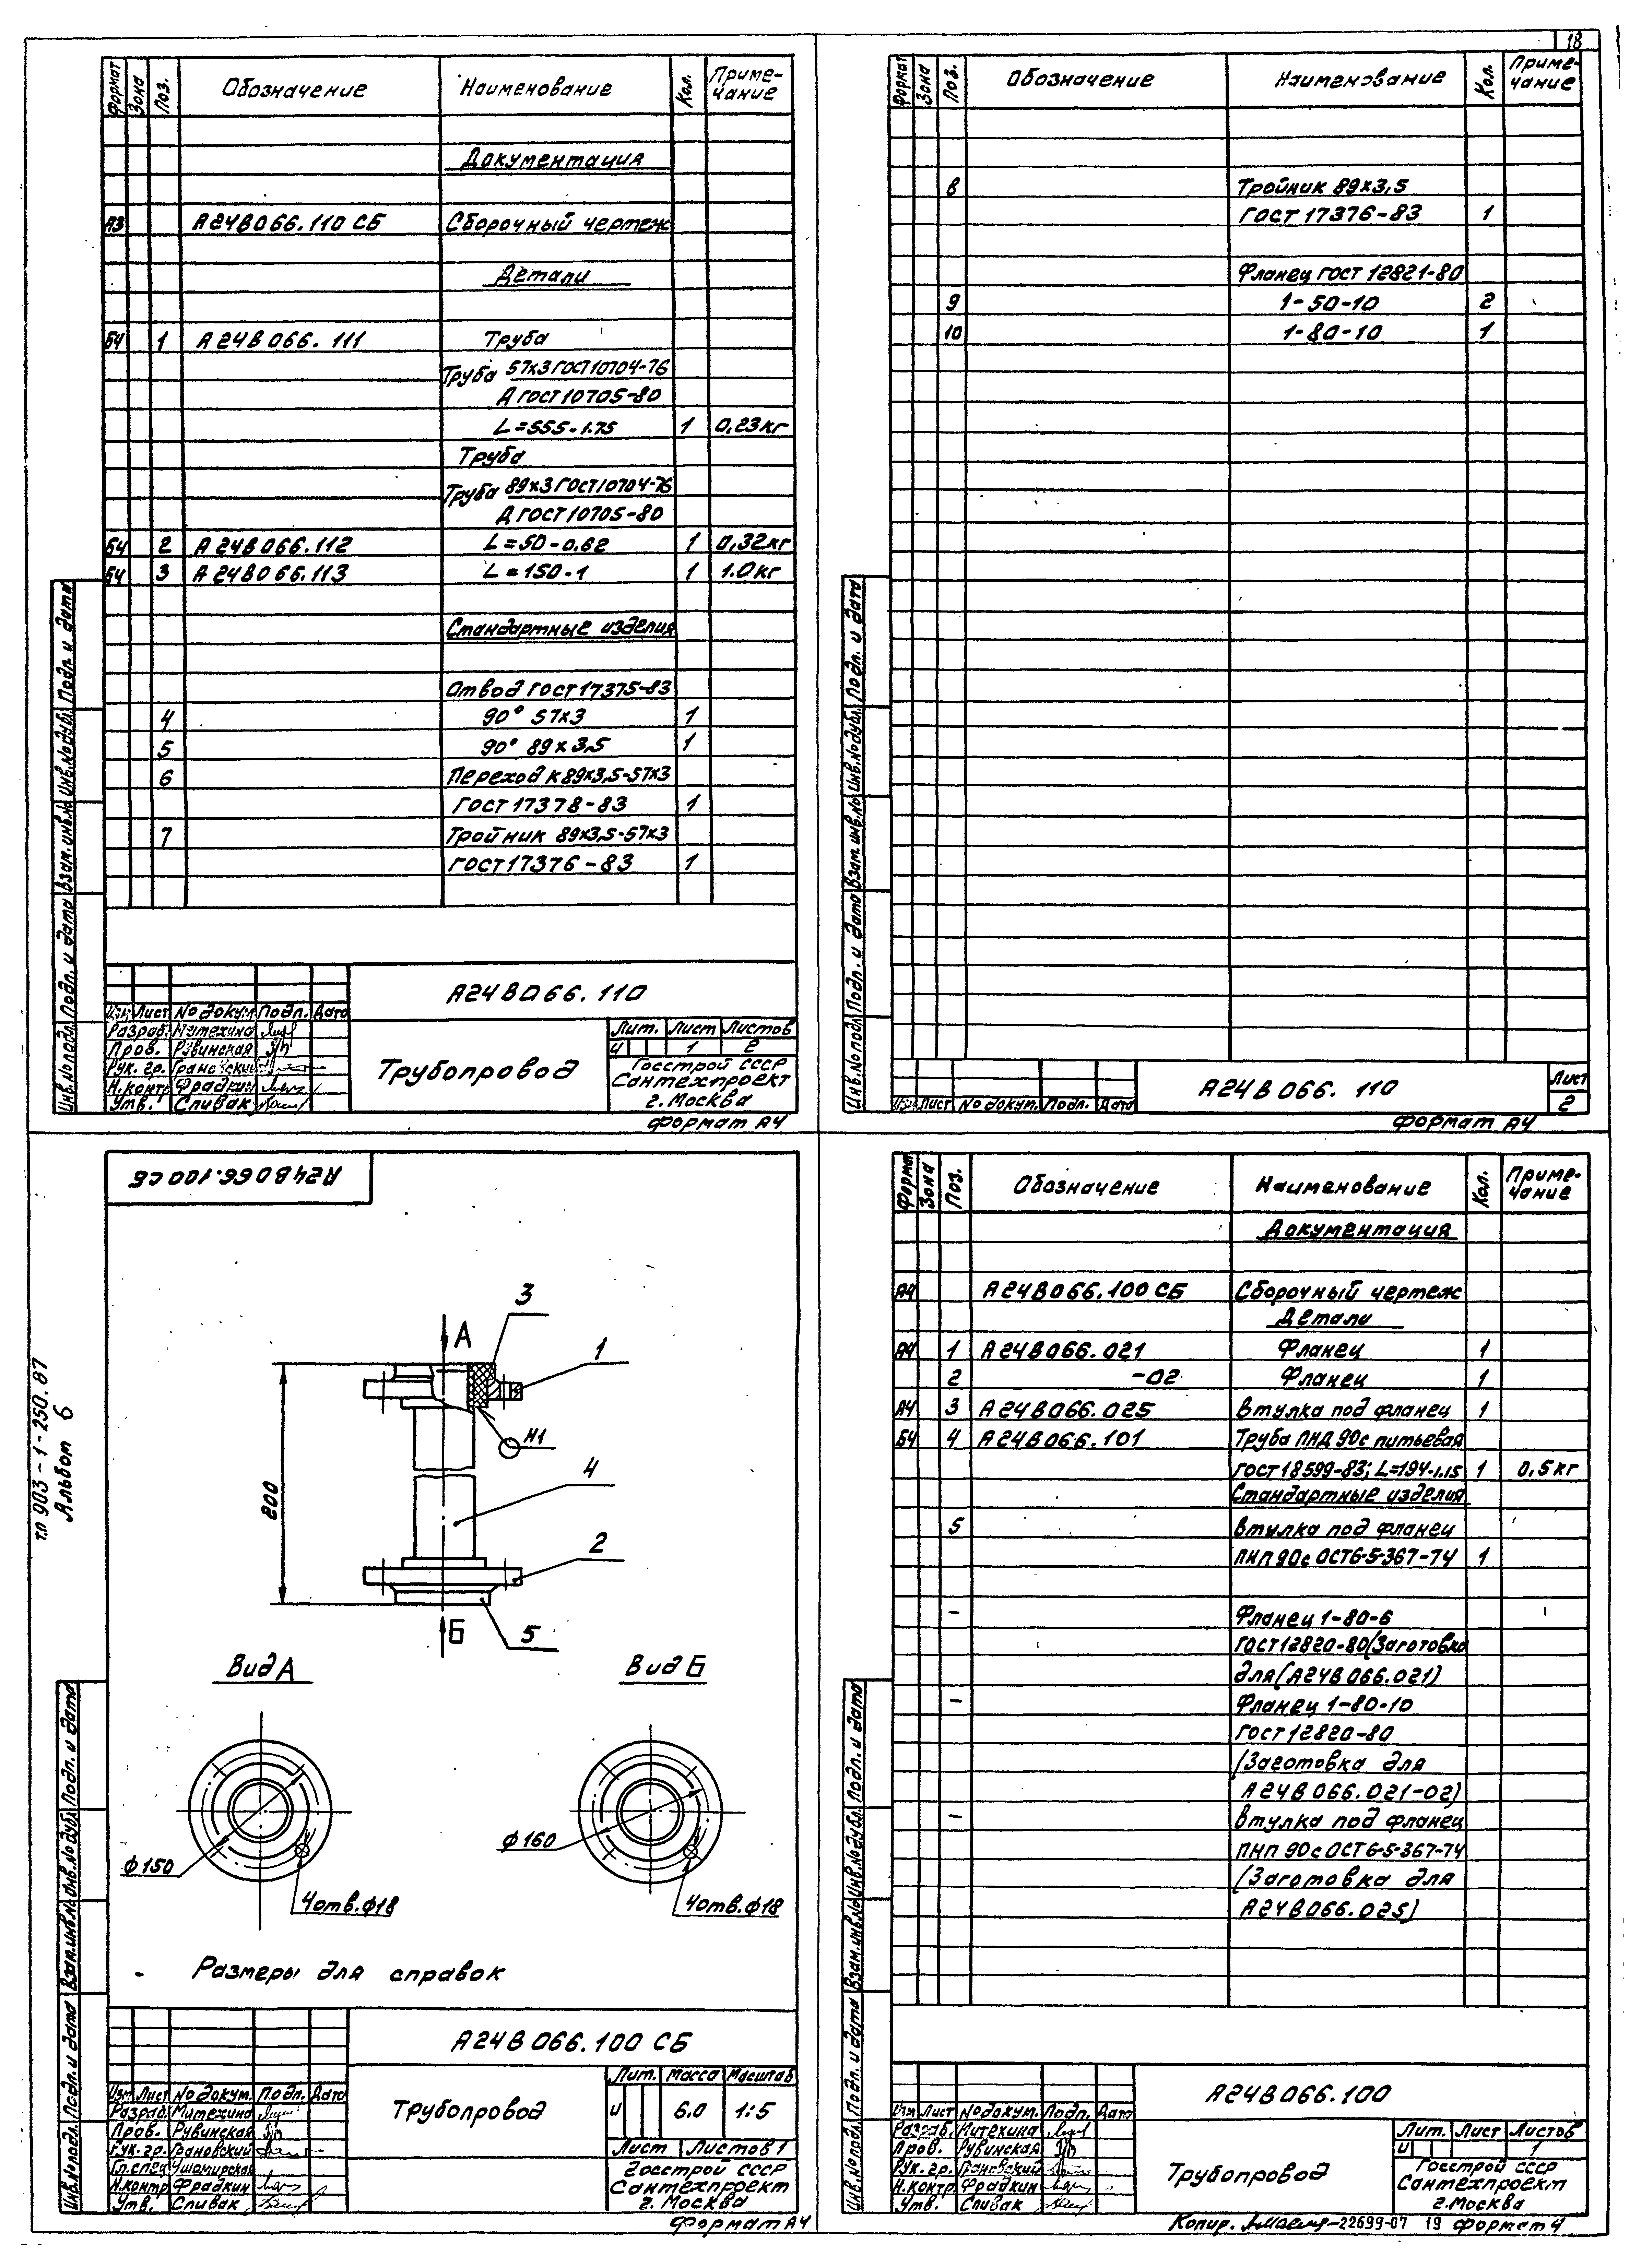 18
Формат Зона Поз. Обозначение Наименование Кол. Приме-
чание
Документация
А3 А24В066.110 СБ Сборочный чертеж
Детали
Б4 1 А24В066.111 Труба
Труба 57х3 ГОСТ10704-76
Д ГОСТ10705-80
L=555-1.75 1 0,23кг
Труба
Труба 89х3 ГОСТ10704-76
Д ГОСТ10705-80
Б4 2 А24В066.112 L=50-0.62 1 0,32кг
Б4 3 А24В066.113 L=150-1 1 1.0кг
Стандартные изделия
Отвод ГОСТ17375-83
4 90° 57х3 1
5 90° 89х3,5 1
6 Переход К89х3,5-57х3
ГОСТ17378-83 1
7 Тройник 89х3,5-57х3
ГОСТ17376-83 1
Инв.№подл. Подп. и дата Взам.инв.№ Инв.№дубл. Подп. и дата
А24В066.110
Изм Лист №докум. Подп. Дата
Разраб. Митехина
Пров. Рувинская
Рук. гр. Грановский
Н.контр Фрадкин
Утв. Спивак
Трубопровод
Лит. Лист Листов
И 1 2
Госстрой СССР
Сантехпроект
г.Москва
Формат А4
Формат Зона Поз. Обозначение Наименование Кол. Приме-
чание
8 Тройник 89х3,5
ГОСТ17376-83 1
Фланец ГОСТ 12821-80
9 1-50-10 2
10 1-80-10 1
Инв.№подл. Подп. и дата Взам.инв.№ Инв.№дубл. Подп. и дата
Изм Лист №докум. Подп. Дата
А24В066.110
Лист
2
Формат А4
т.п 903-1-250.87
Альбом 6
А24В066.100 СБ
А
3
1
Н1
4
200
2
Б
5
Вид А
ф150
4отв.ф18
Вид Б
ф160
4отв.ф18
Размеры для справок
Инв.№подл. Подп. и дата Взам.инв.№ Инв.№дубл. Подп. и дата
А24В066.100 СБ
Изм Лист №докум. Подп. Дата
Разраб. Митехина
Пров. Рувинская
Рук. гр. Грановский
Гл.спец Ушомирская
Н.контр Фрадкин
Утв. Спивак
Трубопровод
Лит. Масса Масштаб
И 6.0 1:5
Лист Листов 1
Госстрой СССР
Сантехпроект
г.Москва
Формат А4
Формат Зона Поз. Обозначение Наименование Кол. Приме-
чание
Документация
А4 А24В066.100 СБ Сборочный чертеж
Детали
А4 1 А24В066.021 Фланец 1
2 -02 Фланец 1
А4 3 А24В066.025 Втулка под фланец 1
Б4 4 А24В066.101 Труба ПНД 90с питьевая
ГОСТ18599-83; L=194-1.15 1 0,5кг
Стандартные изделия
5 Втулка под фланец
ПНП 90с ОСТ6-5-367-74 1
- Фланец 1-80-6
ГОСТ12820-80(Заготовка
для(А24В066.021)
- Фланец 1-80-10
ГОСТ12820-80
(Заготовка для
А24В066.021-02)
- Втулка под фланец
ПНП 90с ОСТ6-5-367-74
(Заготовка для
А24В066.025)
Инв.№подл. Подп. и дата Взам.инв.№ Инв.№дубл. Подп. и дата
А24В066.100
Изм Лист №докум. Подп. Дата
Разраб. Митехина
Пров. Рувинская
Рук. гр. Грановский
Н.контр Фрадкин
Утв. Спивак
Трубопровод
Лит. Лист Листов
И 1
Госстрой СССР
Сантехпроект
г.Москва
Копир. 22699-07 19 Формат 4